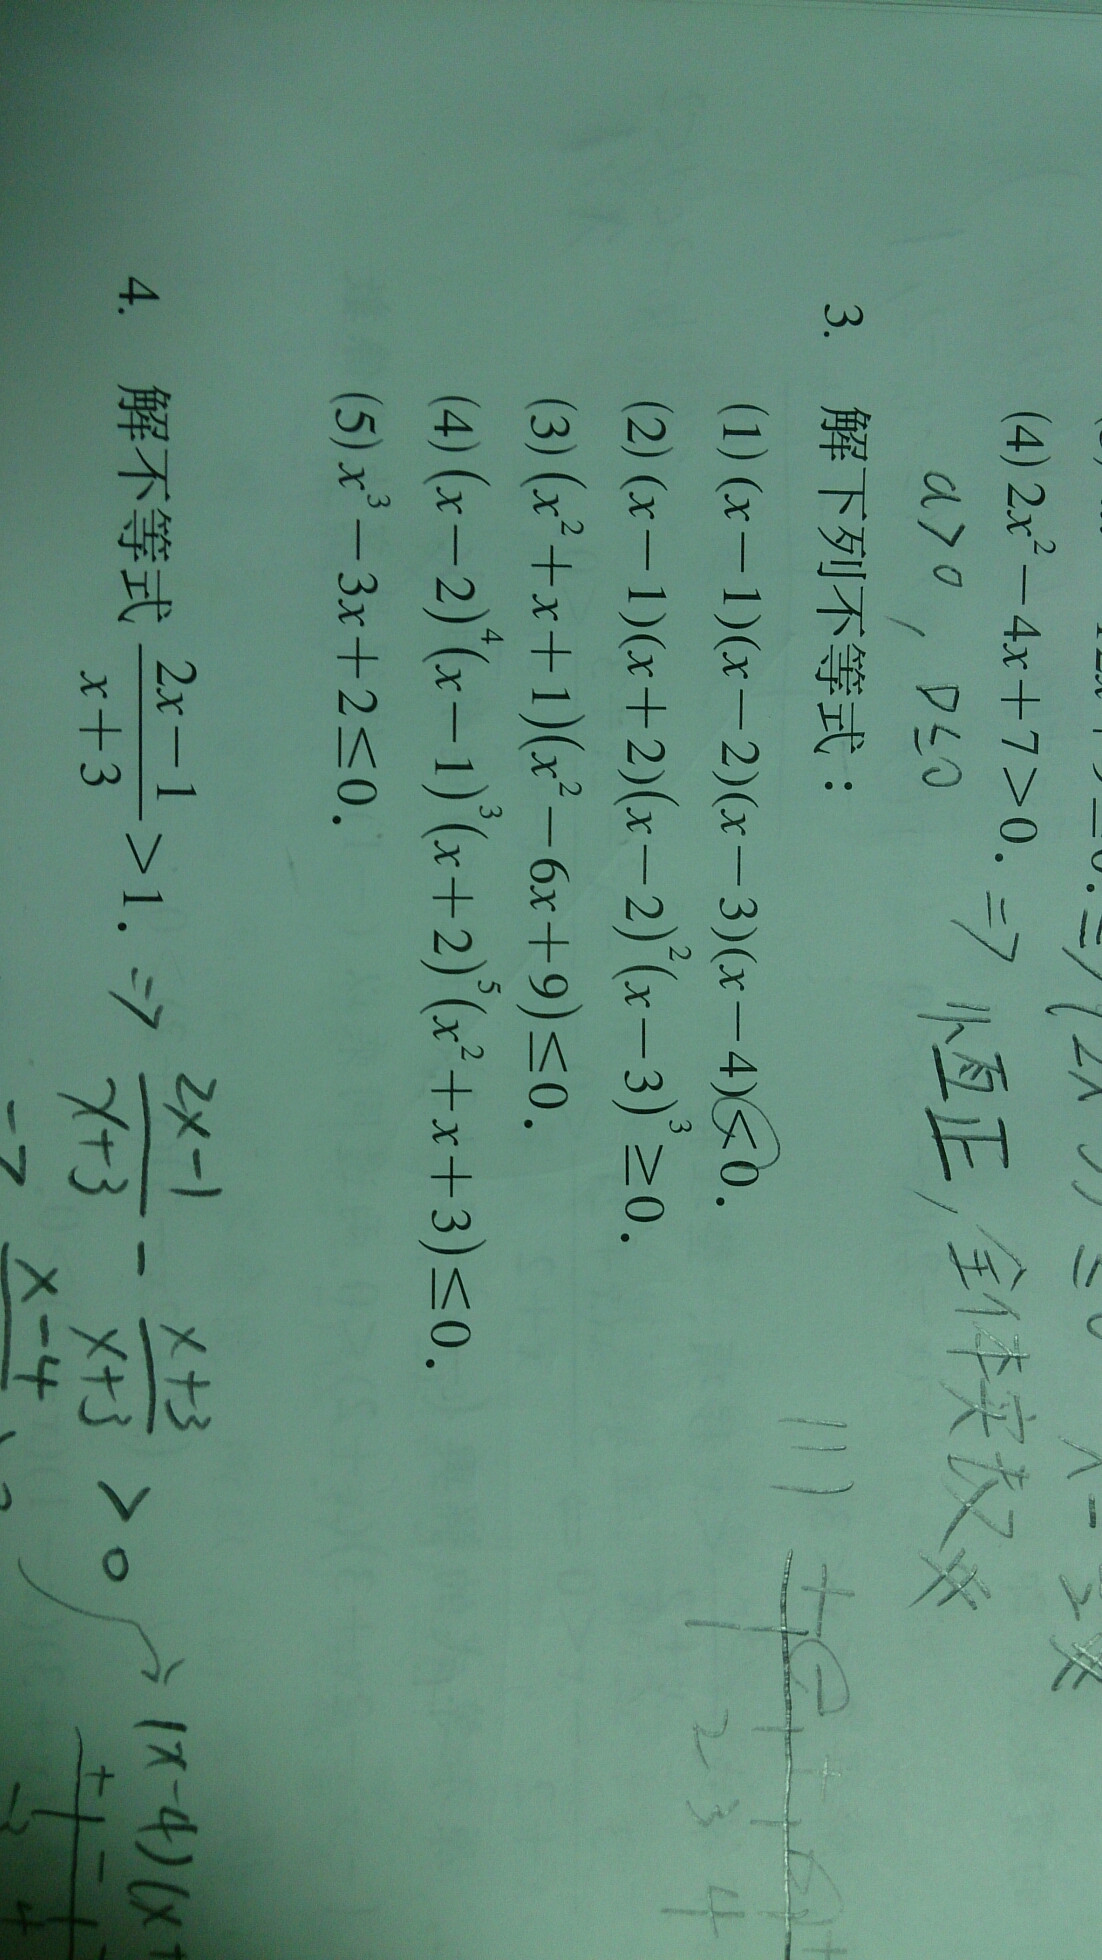 (4) 2x²－4x＋7＞0. ⇒ 恆正, 全体实数 #
a>0, D≤0
3. 解下列不等式：
(1) (x－1)(x－2)(x－3)(x－4)≤0.
(2) (x－1)(x＋2)(x－2)²(x－3)³≥0.
(3) (x²＋x＋1)(x²－6x＋9)≤0.
(4) (x－2)⁴(x－1)³(x＋2)⁵(x²＋x＋3)≤0.
(5) x³－3x＋2≤0.
(1) + - + - +
1 2 3 4
4. 解不等式 (2x－1)/(x＋3)＞1. ⇒ (2x-1)/(x+3) - (x+3)/(x+3) > 0
(x-4)(x+
+ - +
-3 4
⇒ x-4